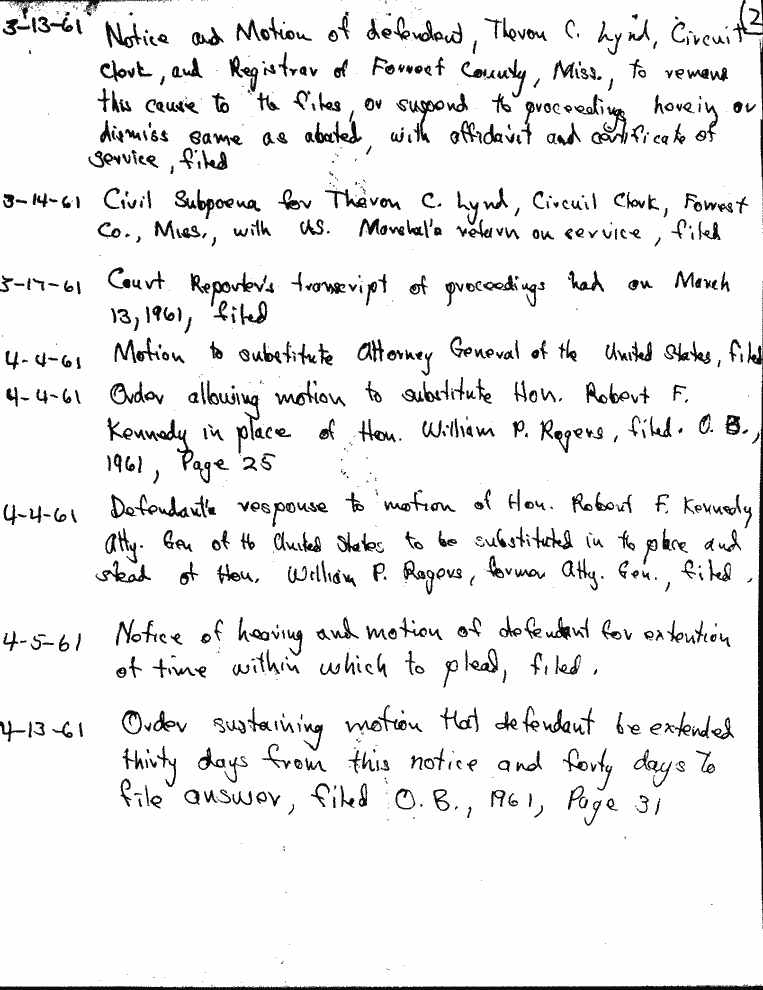 (2
3-13-61 Notice and Motion of defendant, Theron C. Lynd, Circuit
Clerk, and Registrar of Forrest County, Miss., to remand
this cause to the files, or suspend the proceedings herein or
dismiss same as abated, with affidavit and certificate of
service, filed
3-14-61 Civil Subpoena for Theron C. Lynd, Circuit Clerk, Forrest
Co., Miss., with U.S. Marshal's return on service, filed
3-17-61 Court Reporter's transcript of proceedings had on March
13, 1961, filed
4-4-61 Motion to substitute Attorney General of the United States, filed
4-4-61 Order allowing motion to substitute Hon. Robert F.
Kennedy in place of Hon. William P. Rogers, filed. O.B.,
1961, Page 25
4-4-61 Defendant's response to motion of Hon. Robert F. Kennedy
Atty. Gen of the United States to be substituted in the place and
stead of Hon. William P. Rogers, former Atty. Gen., filed.
4-5-61 Notice of hearing and motion of defendant for extention
of time within which to plead, filed.
4-13-61 Order sustaining motion that defendant be extended
thirty days from this notice and forty days to
file answer, filed O.B., 1961, Page 31